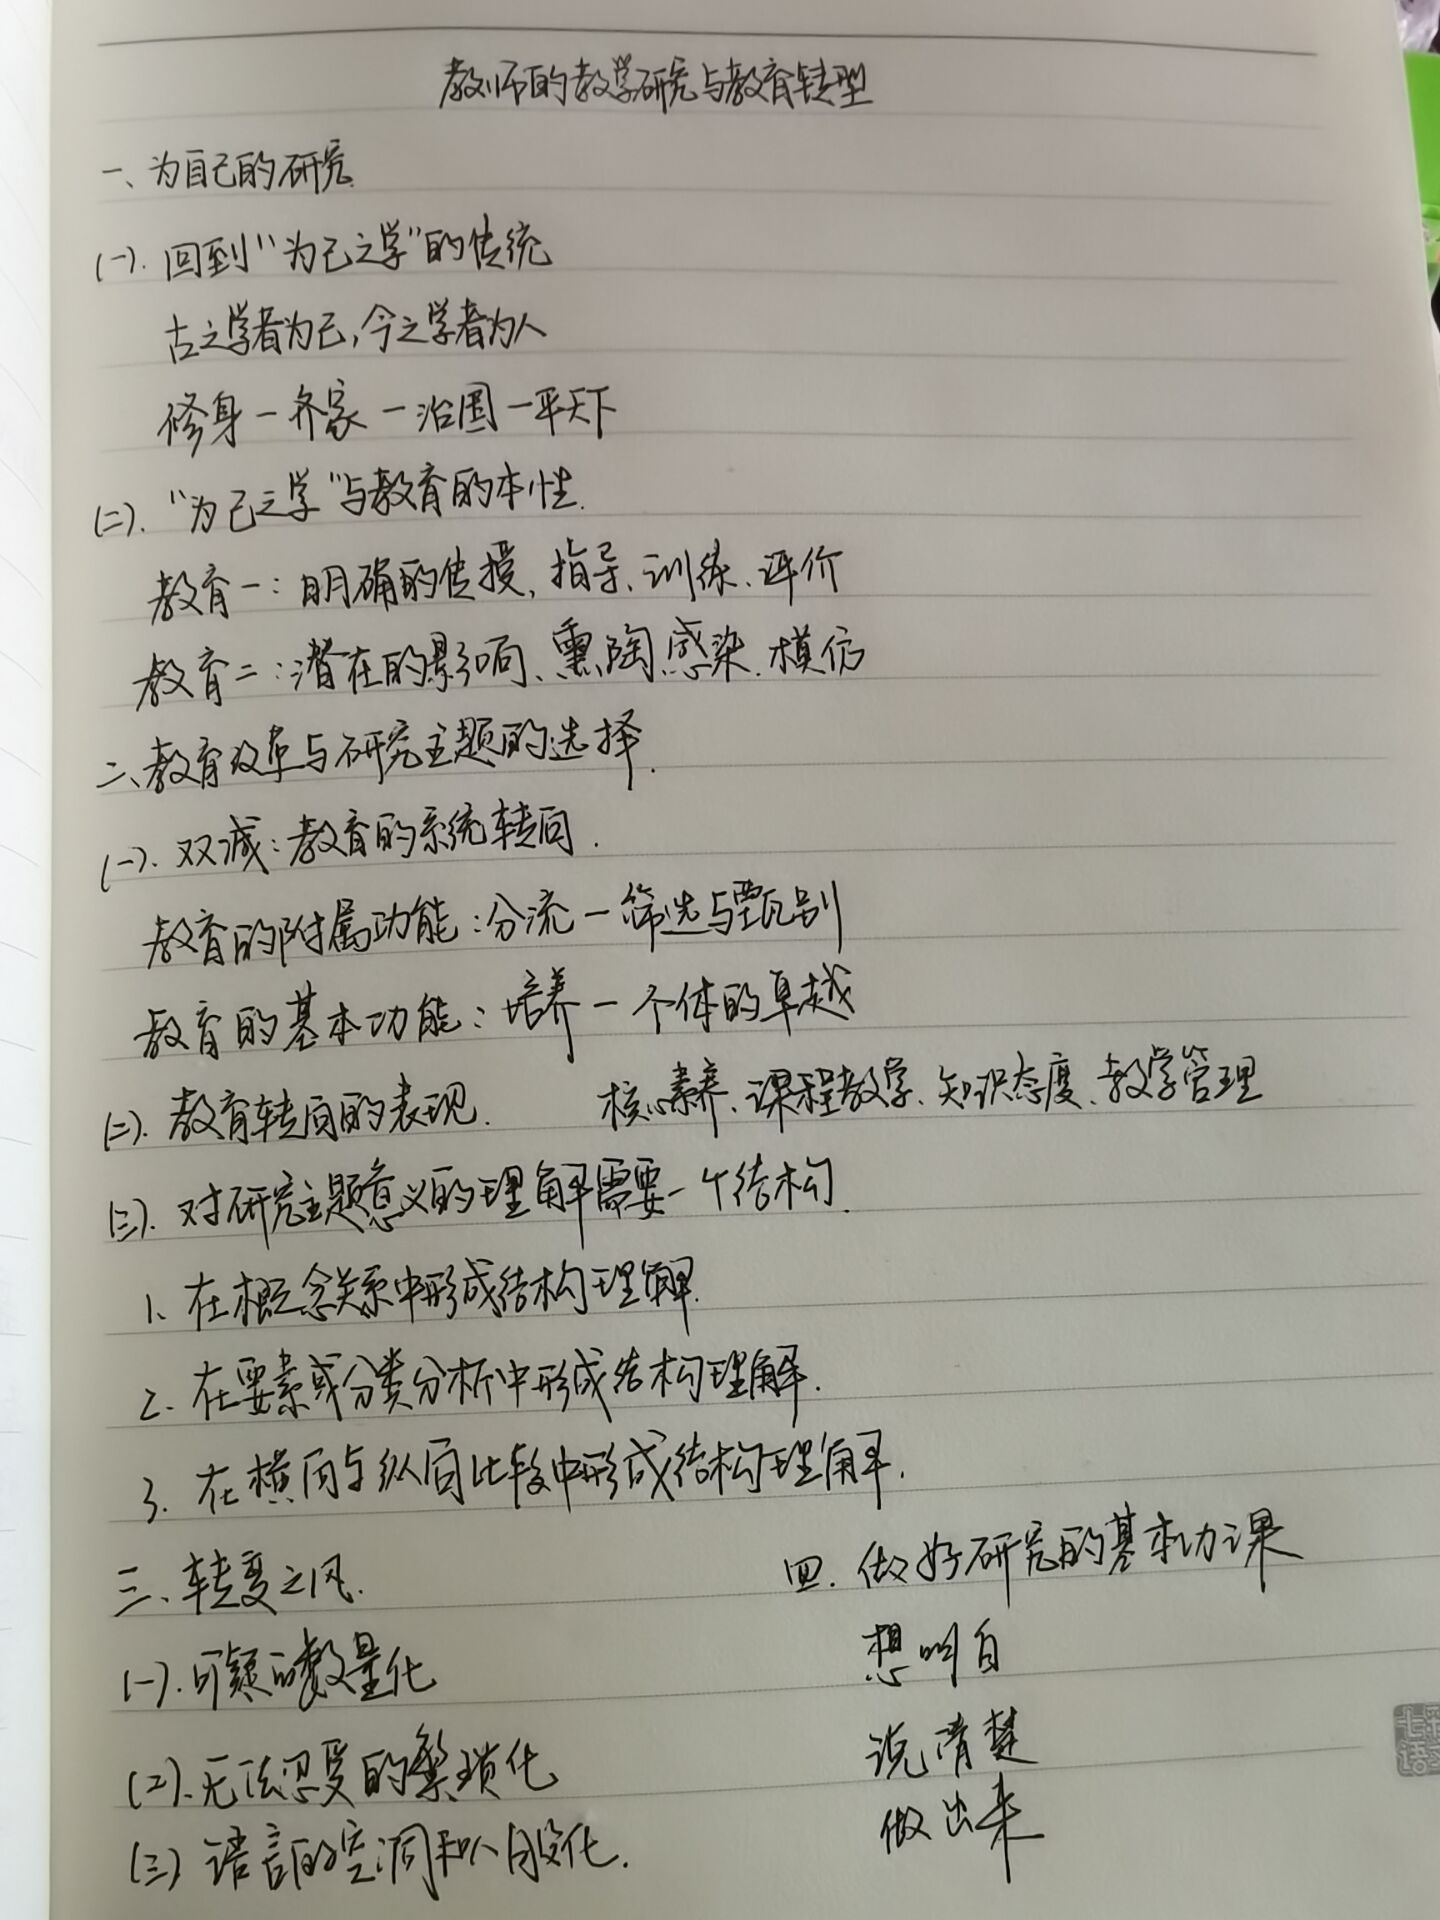 教师的教学研究与教育转型
一、为自己的研究
(一). 回到“为己之学”的传统
古之学者为己,今之学者为人
修身一齐家一治国一平天下
(二). “为己之学”与教育的本性.
教育一:明确的传授、指导、训练、评价
教育二:潜在的影响、熏陶、感染、模仿
二、教育改革与研究主题的选择.
(一). 双减:教育的系统转向.
教育的附属功能:分流一筛选与甄别
教育的基本功能:培养一个体的卓越
(二). 教育转向的表现. 核心素养、课程教学、知识态度、教学管理
(三). 对研究主题意义的理解需要一个结构.
1、在概念关系中形成结构理解.
2. 在要素或分类分析中形成结构理解.
3. 在横向与纵向比较中形成结构理解.
三、转变之风.
(一). 可疑的数量化
(二). 无法忍受的繁琐化
(三) 语言的空洞和八股化.
四. 做好研究的基本功课
想明白
说清楚
做出来